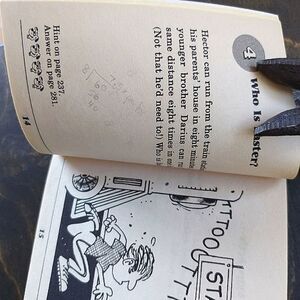 4
Who Is Faster?
Hector can run from the train
his parents' house in eight
younger brother Darius can
same distance eight times in
(Not that he'd need to!) Who is
Hint on page 237.
Answer on page 281.
14
15
TTOO
TTT